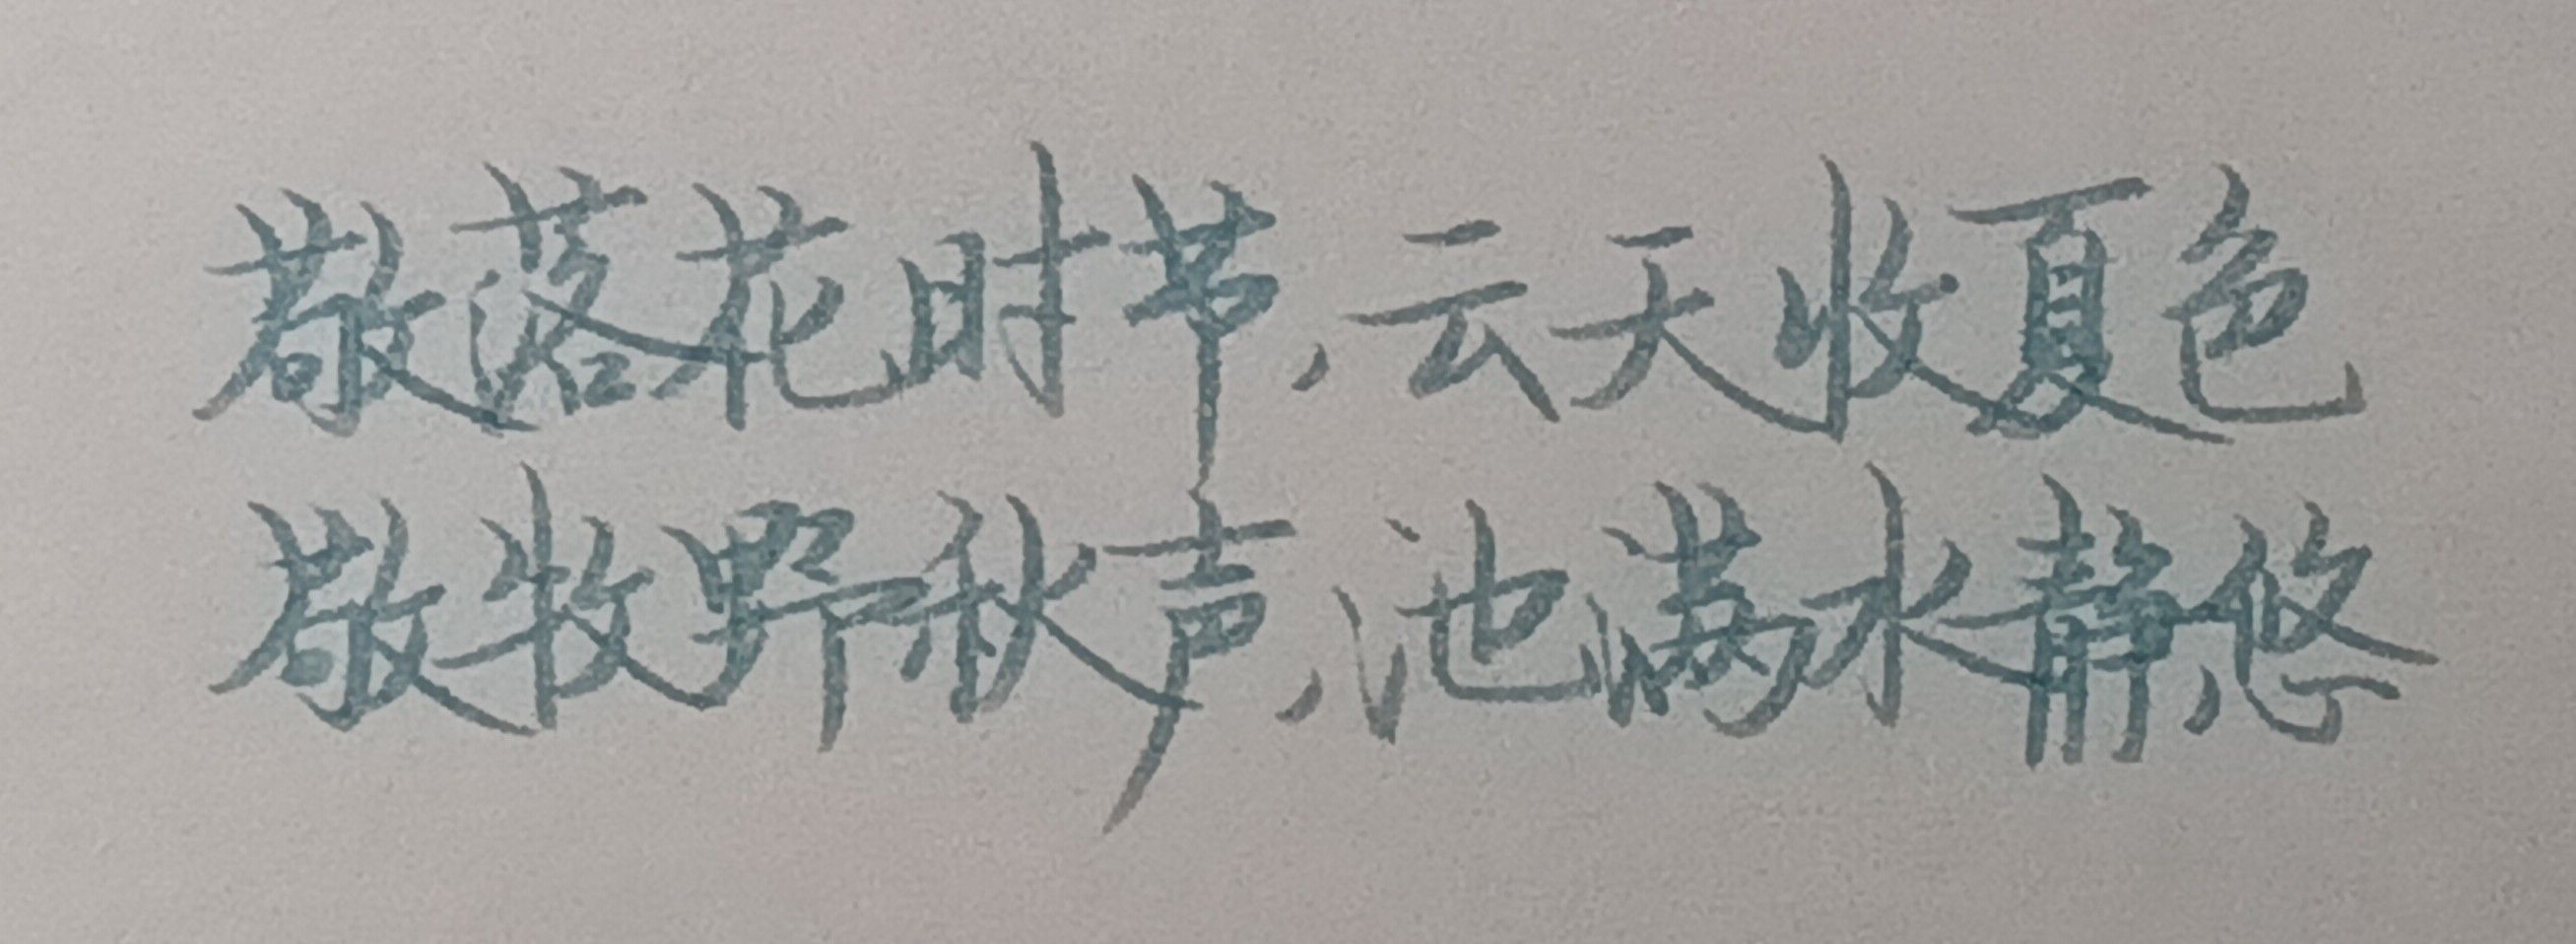 敬落花时节,云天收夏色
敬牧野秋声,池满水静悠